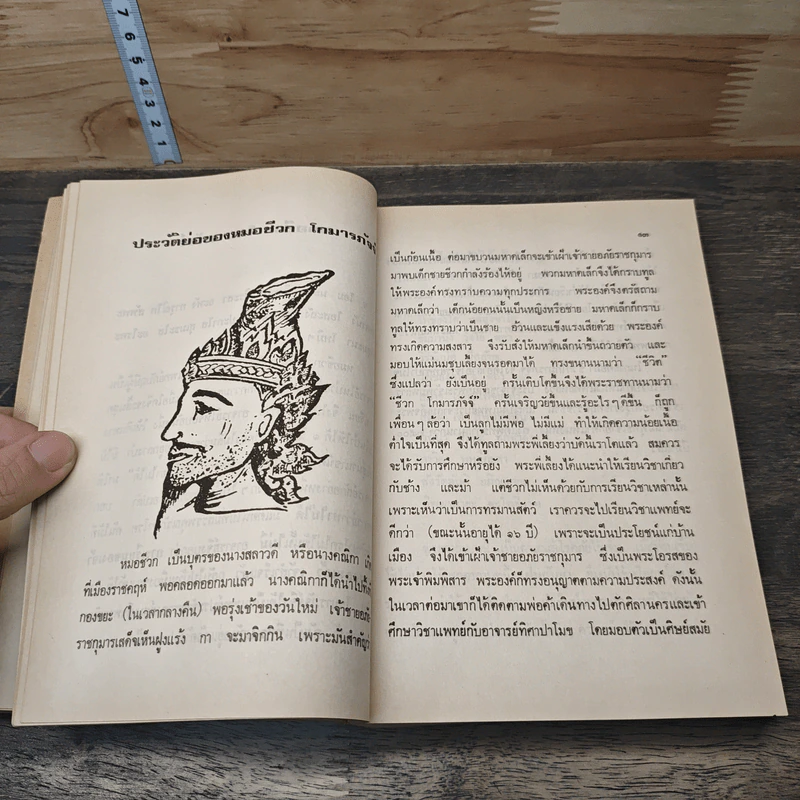 7 6 5 4 3 2 1
ประวัติย่อของหมอชีวก โกมารภัจจ์
หมอชีวก เป็นบุตรของนางสลาวดี หรือนางคณิกา
ที่เมืองราชคฤห์ พอคลอดออกมาแล้ว นางคณิกาก็ได้นำไปทิ้งที่
กองขยะ (ในเวลากลางคืน) พอรุ่งเช้าของวันใหม่ เจ้าชายอภัย
ราชกุมารเสด็จเห็นฝูงแร้ง กา จะมาจิกกิน เพราะมันสำคัญว่า
๑๓
เป็นก้อนเนื้อ ต่อมาขบวนมหาดเล็กจะเข้าเฝ้าเจ้าชายอภัยราชกุมาร
มาพบเด็กชายชีวกกำลังร้องไห้อยู่ พวกมหาดเล็กจึงได้กราบทูล
ให้พระองค์ทรงทราบความทุกประการ พระองค์จึงตรัสถาม
มหาดเล็กว่า เด็กน้อยคนนั้นเป็นหญิงหรือชาย มหาดเล็กก็กราบ
ทูลให้ทรงทราบว่าเป็นชาย อ้วนและแข็งแรงเสียด้วย พระองค์
ทรงเกิดความสงสาร จึงรับสั่งให้มหาดเล็กนำขึ้นถวายตัว และ
มอบให้แม่นมชุบเลี้ยงจนรอดมาได้ ทรงขนานนามว่า “ชีวิต”
ซึ่งแปลว่า ยังเป็นอยู่ ครั้นเติบโตขึ้นจึงได้พระราชทานนามว่า
“ชีวก โกมารภัจจ์” ครั้นเจริญวัยขึ้นและรู้อะไรๆ ดีขึ้น ก็ถูก
เพื่อนๆ ล้อว่า เป็นลูกไม่มีพ่อ ไม่มีแม่ ทำให้เกิดความน้อยเนื้อ
ต่ำใจเป็นที่สุด จึงได้ทูลถามพระพี่เลี้ยงว่าบัดนี้เราโตแล้ว สมควร
จะได้รับการศึกษาหรือยัง พระพี่เลี้ยงได้แนะนำให้เรียนวิชาเกี่ยว
กับช้าง และม้า แต่ชีวกไม่เห็นด้วยกับการเรียนวิชาเหล่านั้น
เพราะเห็นว่าเป็นการทรมานสัตว์ เราควรจะไปเรียนวิชาแพทย์จะ
ดีกว่า (ขณะนั้นอายุได้ ๑๖ ปี) เพราะจะเป็นประโยชน์แก่บ้าน
เมือง จึงได้เข้าเฝ้าเจ้าชายอภัยราชกุมาร ซึ่งเป็นพระโอรสของ
พระเจ้าพิมพิสาร พระองค์ก็ทรงอนุญาตตามความประสงค์ ดังนั้น
ในเวลาต่อมาเขาก็ได้ติดตามพ่อค้าเดินทางไปตักศิลานครและเข้า
ศึกษาวิชาแพทย์กับอาจารย์ทิศาปาโมข โดยมอบตัวเป็นศิษย์สมัย